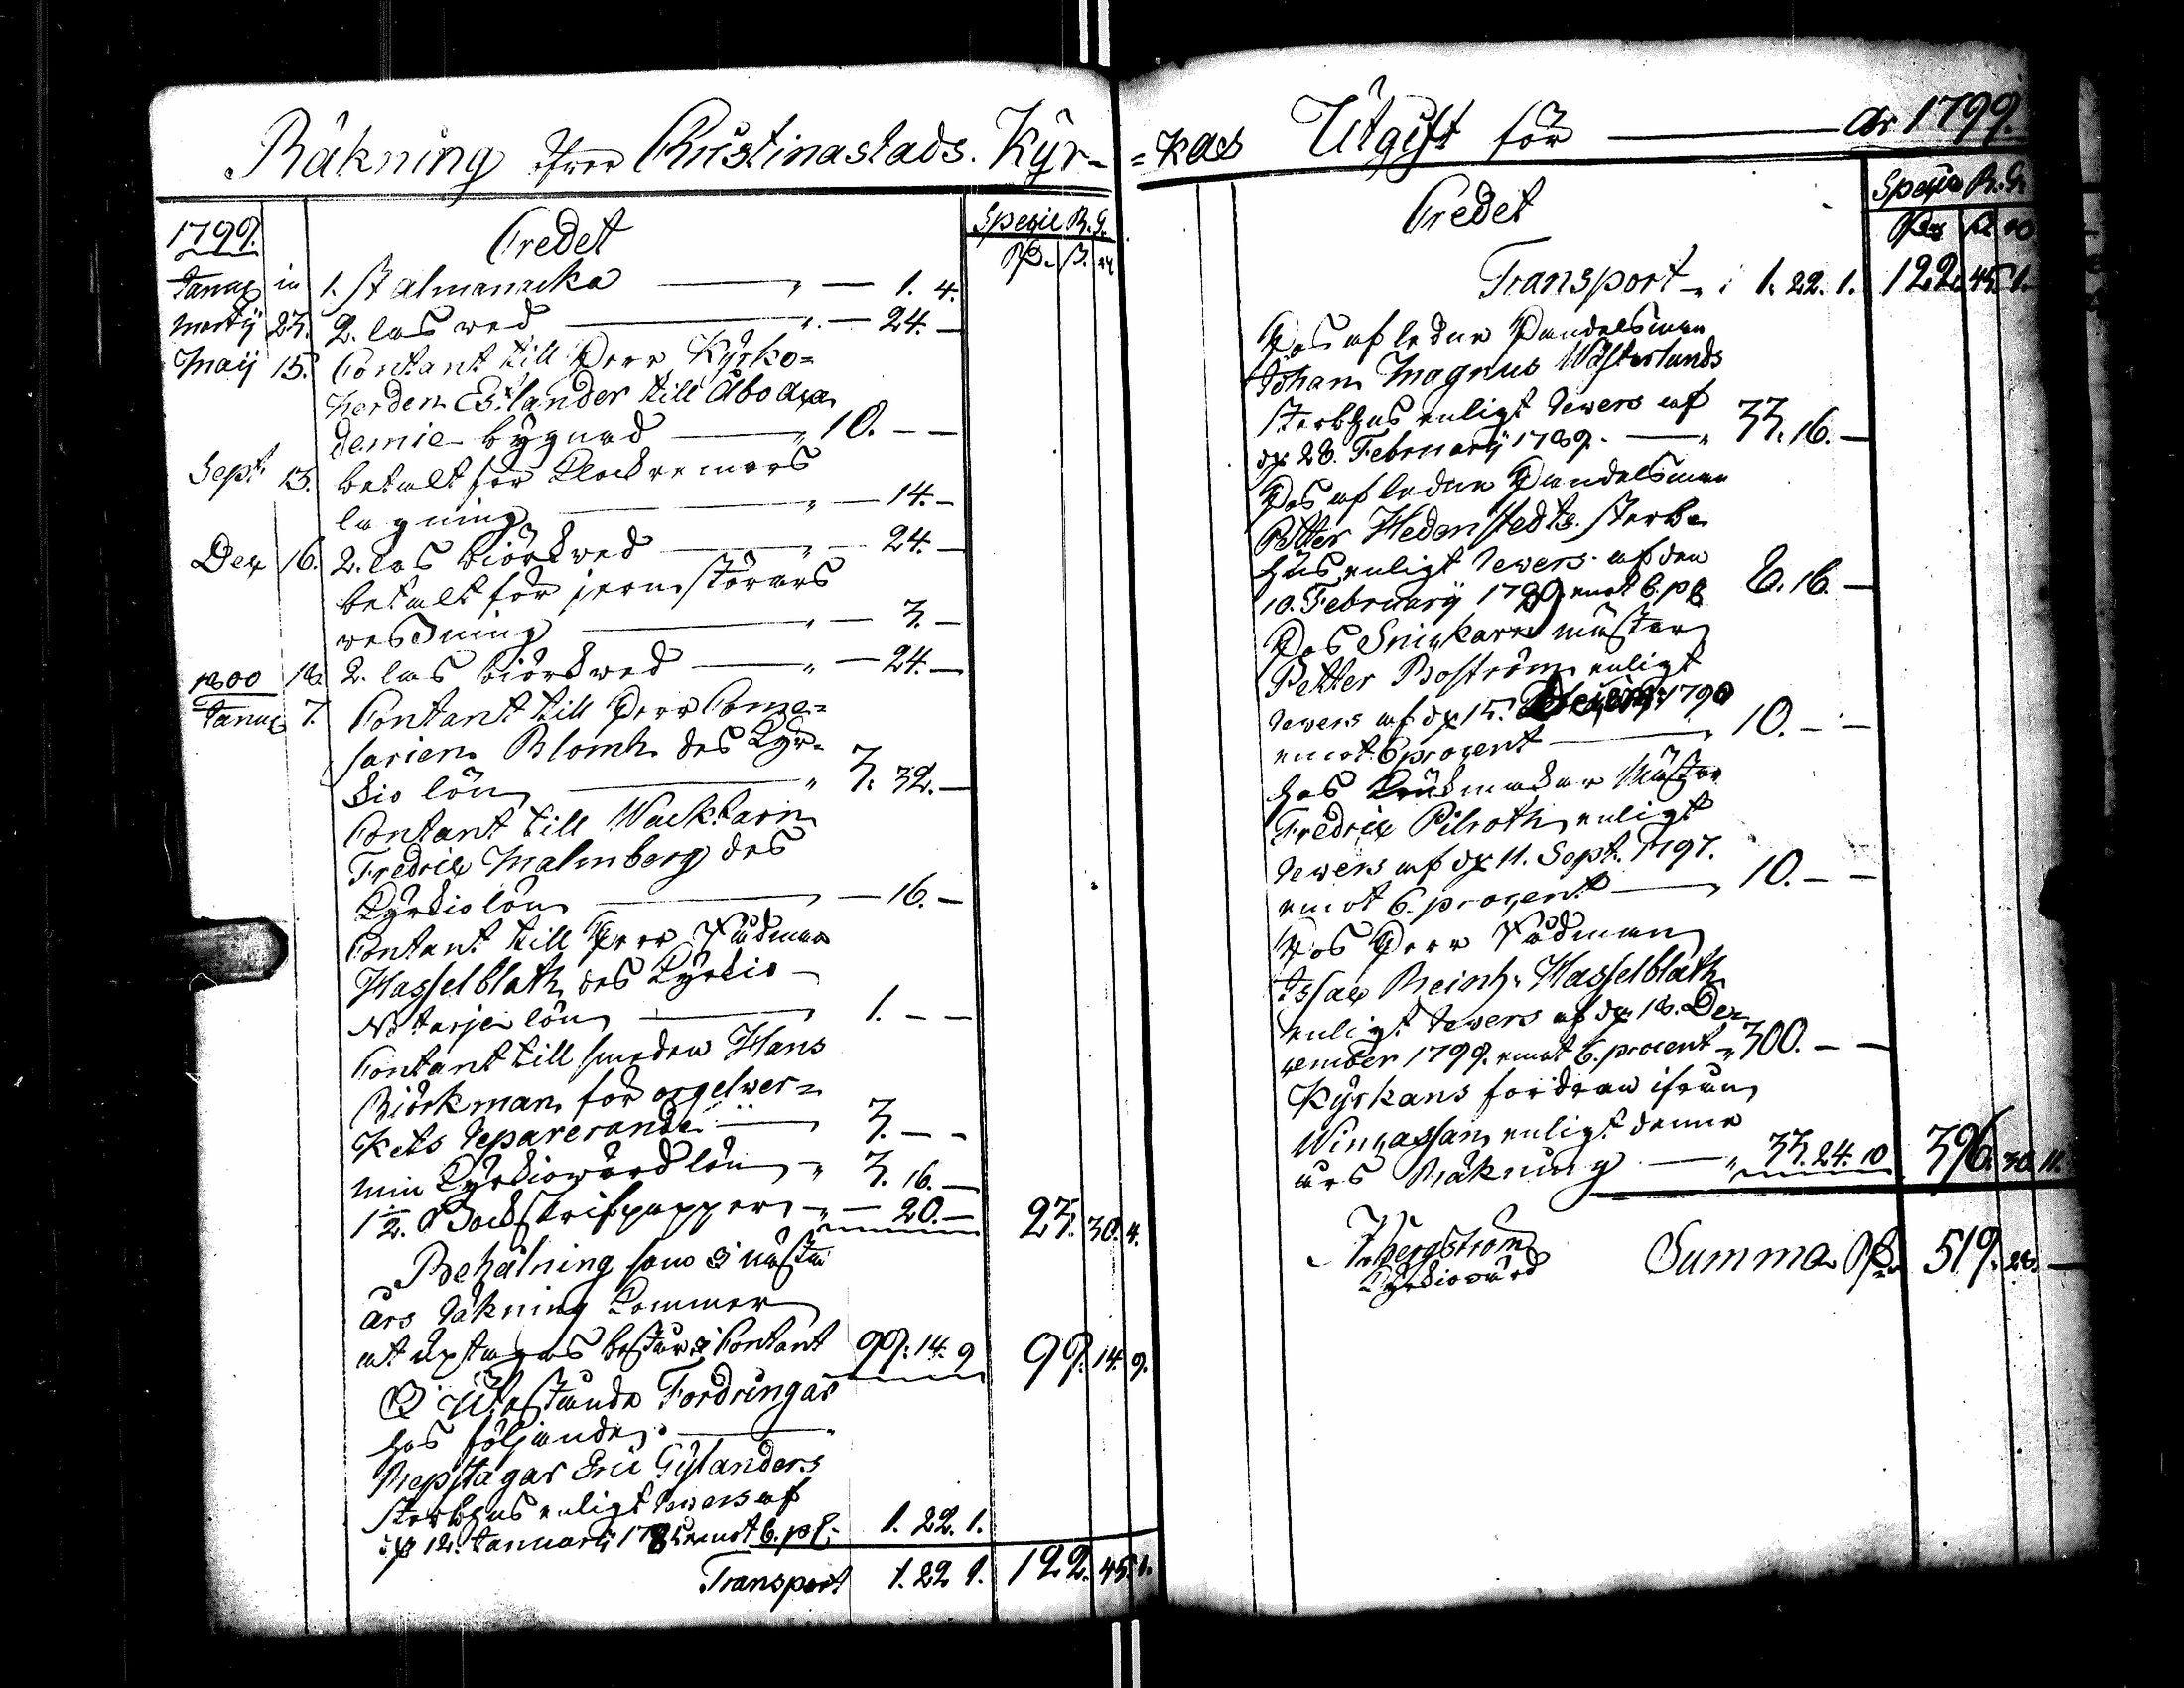 Räkning öfver Christinastads Kÿr-
1799. Credet Specie R. G.
Rd. ß. rs
Januarj in 1. st almanacka — 1. 4.
Martÿ 23. 2. las wed — 24. —
Maÿ 15. Contant till Herr Kÿrko=
herden Estlander till Åbo Aca
demie bÿgnad — 10. — —
Sept. 13. betalt för Klockremars
lagning — 14. —
Dec 16. 2. las biörkwed — 24. —
betalt för jernstörars
wesSning — 3. —
18. 2. las biörkwed — 24. —
1800
Januarj 7. Contant till Herr Comis=
sarien Blomh des Kÿr=
kio lön — 3. 32. —
Contant till Wacktarn
Fredric Malmberg des
Kÿrkiolön — 16. —
Contant till Herr Rådman
Hasselblath des Kÿrkio-
Notarje lön — 1. — —
Contant till smeden Hans
Biörkman för orgelwer=
kets reparerande — 3. — —
min Kÿrkiowärd lön — 3. 16. —
1½. Bock skrifpapper — 20. — 23. 30. 4.
Behålning som i nästa
års räkning kommer
at uptagas består i Contant 99. 14. 9 99. 14. 9.
& Utestånde Fordringar
hos följande. —
Repslagar Eric Gÿlanders
sterbhus enligt revers af
d. 12. Januarÿ 1785 emot 6. p C. 1. 22. 1.
Transport 1. 22 1. 122. 45. 1.
=kas Utgift för — År 1799.
Credet Specie R. G.
Rd ß rs
Transport 1. 22. 1. 122. 45. 1.
Hos afledne Handelsman
Johan Magnus Wästerlunds
sterbhus enligt revers af
d. 28. Februarÿ 1789. — 33. 16. —
Hos afledne Handelsman
Petter Hedenstedts sterb=
hus enligt revers af den
10. Februarÿ 1789 emot 6. p C 8. 16. —
Hos Snickare mästar
Petter Boström enligt
revers af d. 15. 1790
emot 6 procent — 10. — —
hos Krukmakar Mästar
Fredric Pilroth enligt
revers af d. 11. Sept. 1797.
emot 6. procent — 10. — —
Hos Herr Rådman
Isaac Reinh. Hasselblath
enligt revers af d. 18. De=
cember 1799. emot 6. procent 300. — —
Kÿrkans fordran ifrån
Wincassan enligt denne
års Räkning — 33. 24. 10 396. 30. 11.
Bergström
Kÿrkiovärd
Summa Rd. 519. 28. —